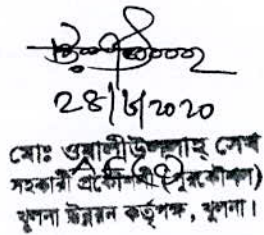 ২৪/৬/২০২০
মোঃ ওয়ালীউল্লাহ্ সেখ
সহকারী প্রকৌশলী (পুরকৌশল)
খুলনা উন্নয়ন কর্তৃপক্ষ, খুলনা।